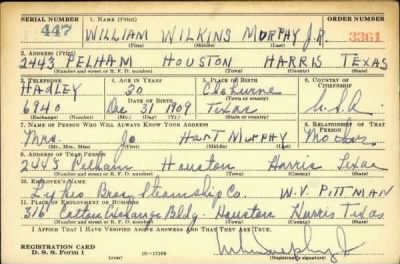 SERIAL NUMBER 1. NAME (Print) ORDER NUMBER
447 WILLIAM WILKINS MURPHY JR. 3361
(First) (Middle) (Last)
2. ADDRESS (Print)
2443 PELHAM HOUSTON HARRIS TEXAS
(Number and street or R. F. D. number) (Town) (County) (State)
3. TELEPHONE 4. AGE IN YEARS 5. PLACE OF BIRTH 6. COUNTRY OF CITIZENSHIP
HADLEY 30 Cleburne
DATE OF BIRTH (Town or county)
6940 Dec 31 1909 Texas U.S.A.
(Exchange) (Number) (Mo.) (Day) (Yr.) (State or country)
7. NAME OF PERSON WHO WILL ALWAYS KNOW YOUR ADDRESS 8. RELATIONSHIP OF THAT PERSON
Mrs. Jo Hart Murphy Mother
(Mr., Mrs., Miss) (First) (Middle) (Last)
9. ADDRESS OF THAT PERSON
2443 Pelham Houston Harris Texas
(Number and street or R. F. D. number) (Town) (County) (State)
10. EMPLOYER'S NAME
Lykes Bros. Steamship Co. W.V. PITTMAN
11. PLACE OF EMPLOYMENT OR BUSINESS
316 Cotton Exchange Bldg. Houston Harris Texas
(Number and street or R. F. D. number) (Town) (County) (State)
I AFFIRM THAT I HAVE VERIFIED ABOVE ANSWERS AND THAT THEY ARE TRUE.
REGISTRATION CARD
D. S. S. Form 1 (over) (Registrant's signature)